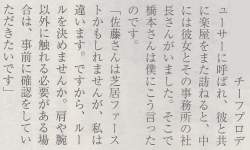 チーフプロデ
ューサーに呼ばれ、彼と共
に楽屋をまた訪ねると、中
には彼女とその事務所の社
長さんがいました。そこで
橋本さんは僕にこう言った
のです。
「佐藤さんは芝居ファース
トかもしれませんが、私は
違います。ですから、ルー
ルを決めませんか。肩や腕
以外に触れる必要がある場
合は、事前に確認をしてい
ただきたいです」